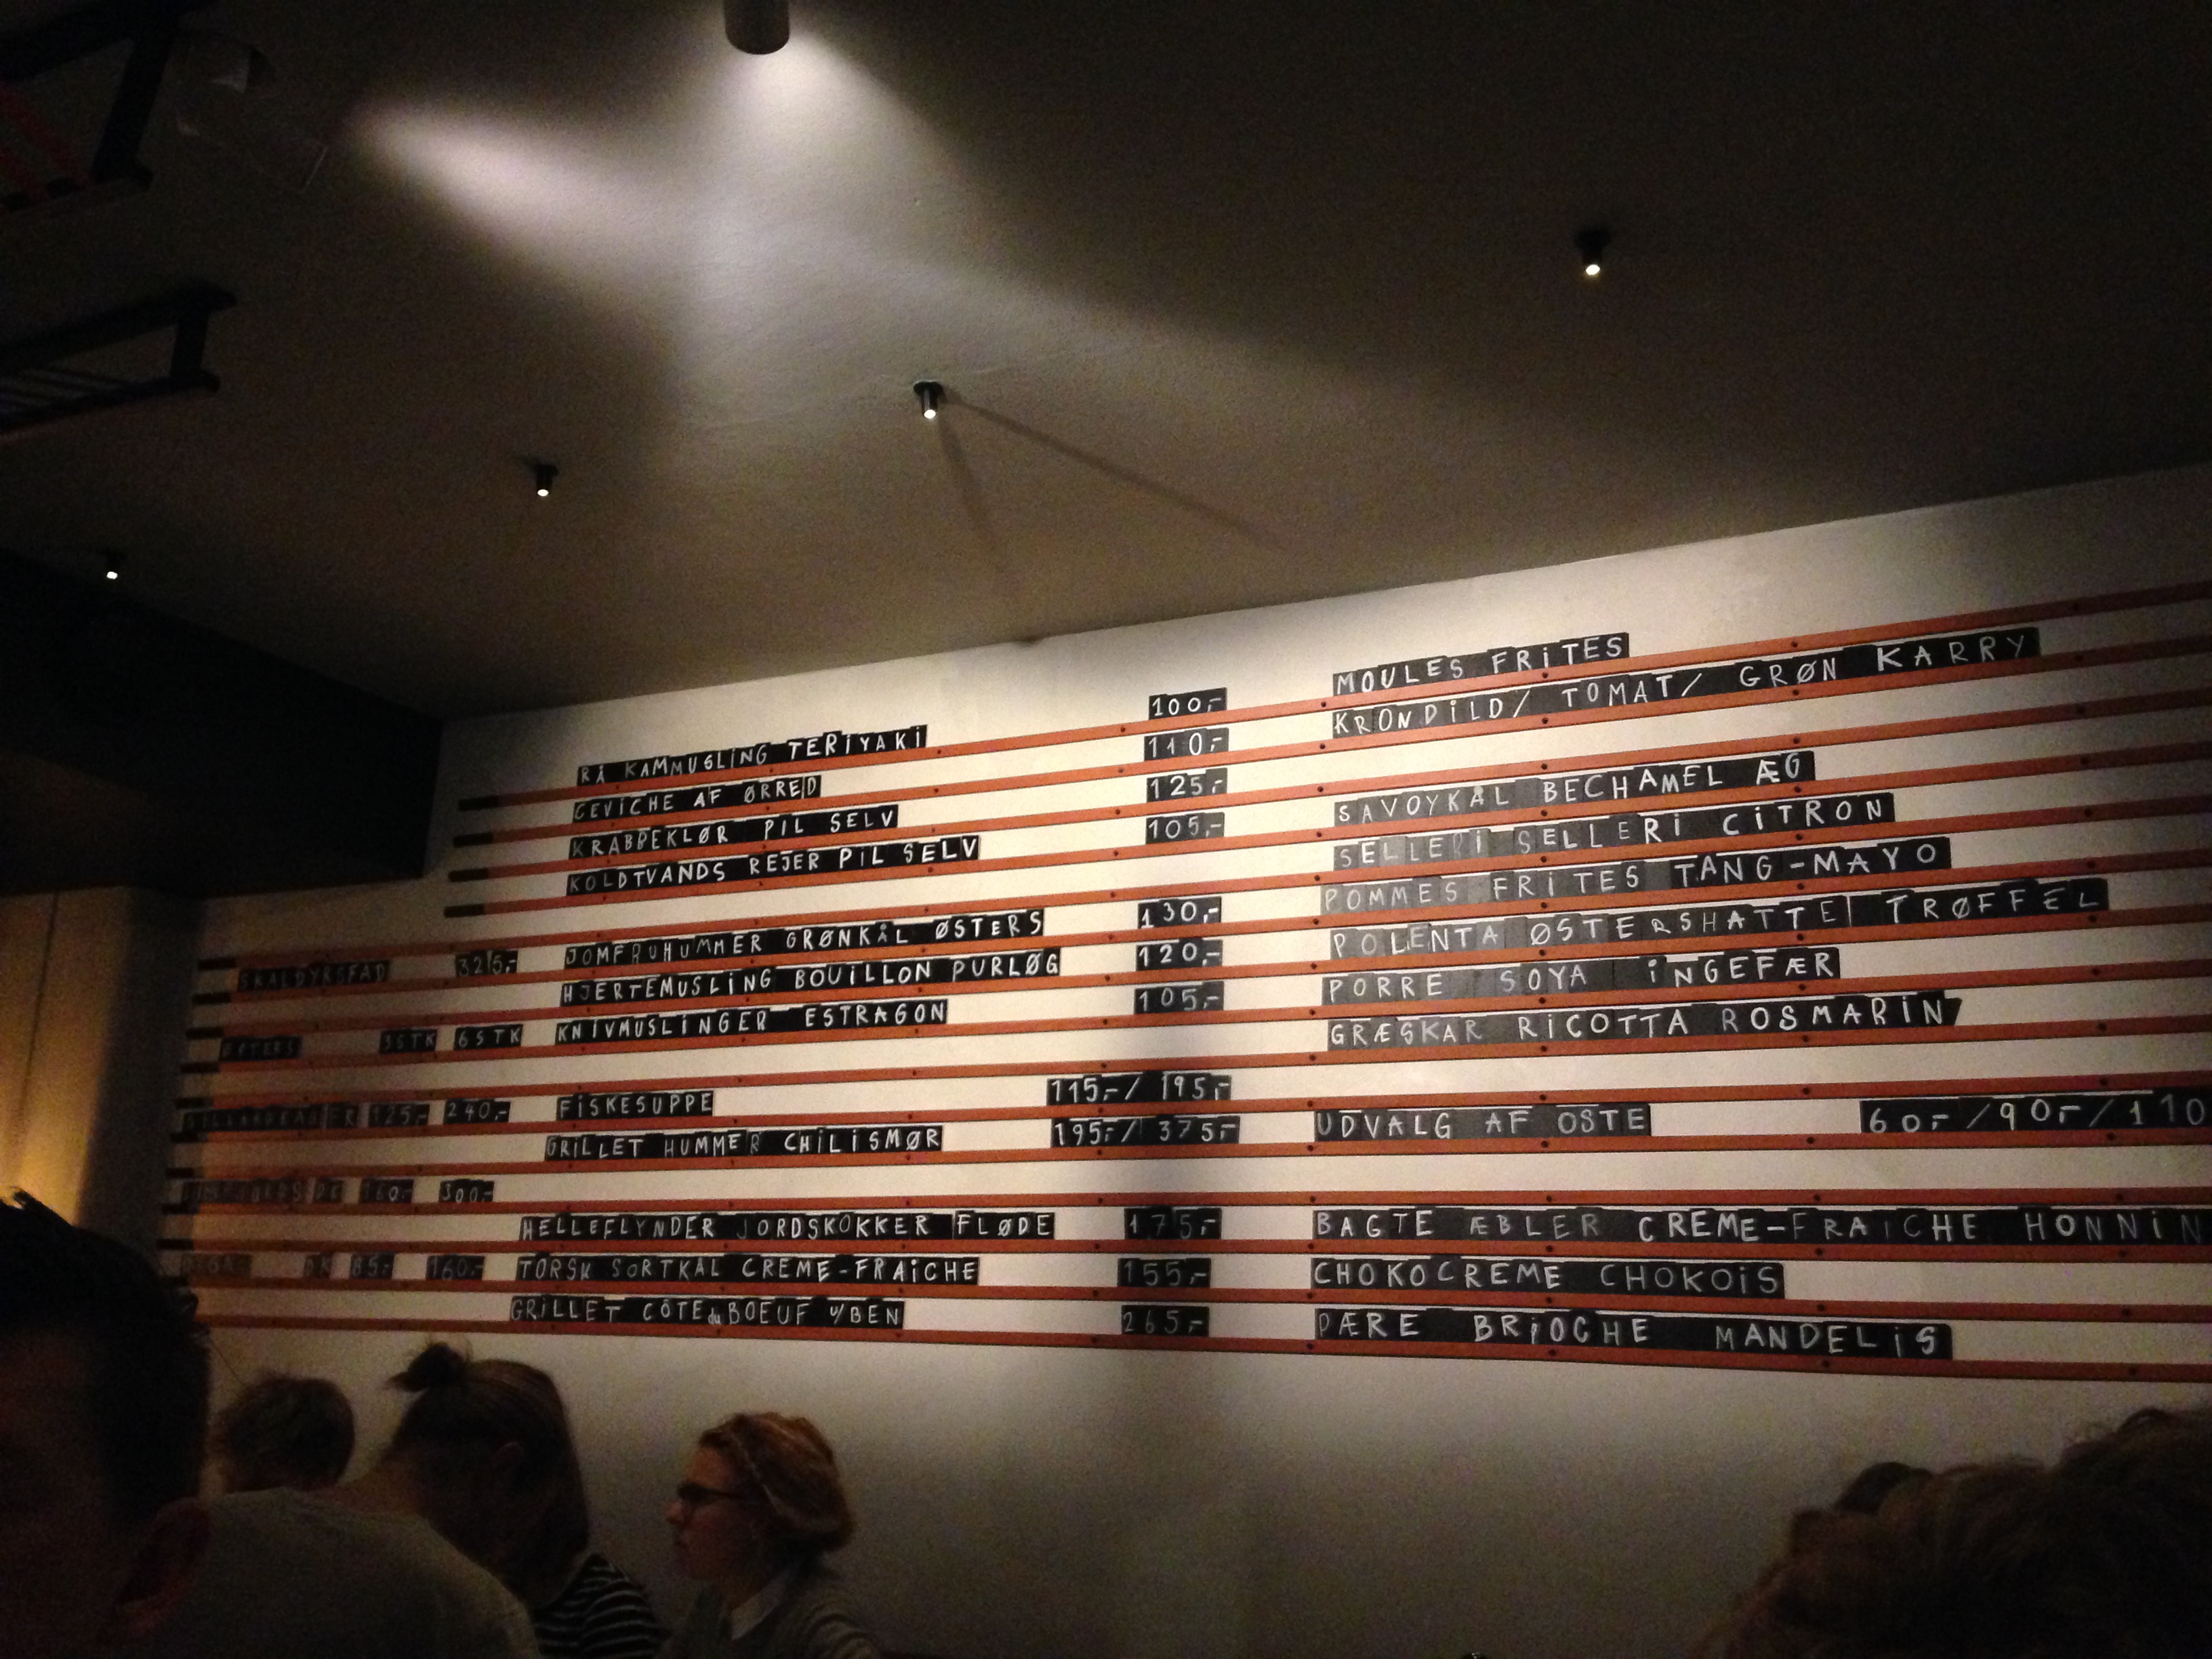 SKALDYRSFAD 325,-
3 STK 6 STK
FR 125,- 240,-
DK 160,- 300,-
DK 85,- 160,-
RÅ KAMMUSLiNG TERiYAKi 100,-
CEViCHE AF ØRRED 110,-
KRABBEKLØR PiL SELV 125,-
KOLDTVANDS REJER PiL SELV 105,-
JOMFRUHUMMER GRØNKÅL ØSTERS 130,-
HJERTEMUSLiNG BOUiLLON PURLØG 120,-
KNiVMUSLiNGER ESTRAGON 105,-
FiSKESUPPE 115,-/ 195,-
GRiLLET HUMMER CHiLiSMØR 195,-/ 375,-
HELLEFLYNDER JORDSKOKKER FLØDE 175,-
TORSK SORTKÅL CREME-FRAiCHE 155,-
GRiLLET CÔTE du BOEUF u/BEN 265,-
MOULES FRiTES
KRONDiLD/ TOMAT/ GRØN KARRY
SAVOYKÅL BECHAMEL ÆG
SELLERi SELLERi CiTRON
POMMES FRiTES TANG-MAYO
POLENTA ØSTERSHATTE TRØFFEL
PORRE SOYA iNGEFÆR
GRÆSKAR RiCOTTA ROSMARiN
UDVALG AF OSTE 60,-/90,-/110
BAGTE ÆBLER CREME-FRAiCHE HONNiN
CHOKOCREME CHOKOiS
PÆRE BRiOCHE MANDELiS